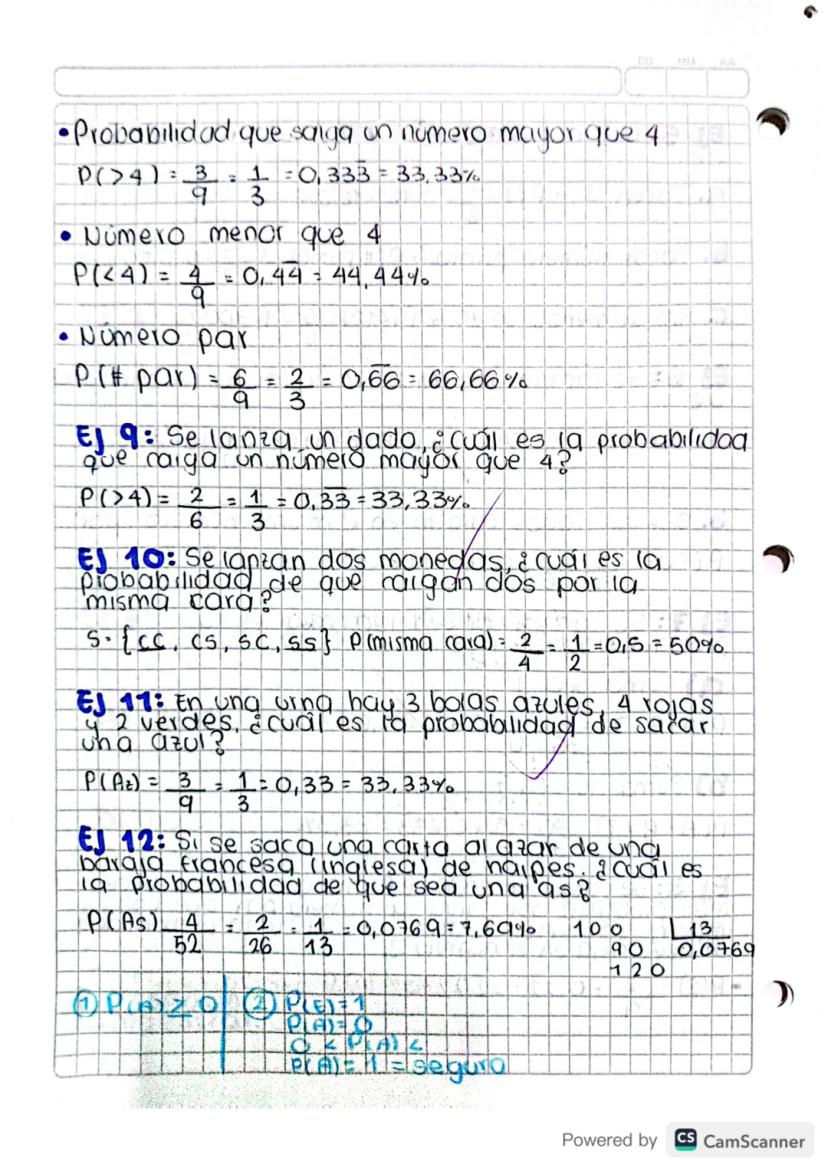 DD MM AA
• Probabilidad que salga un número mayor que 4
P(>4) = 3/9 = 1/3 = 0,33̄3̄ = 33,33%
• Número menor que 4
P(<4) = 4/9 = 0,4̄4̄ = 44,44%
• Número par
P(# par) = 6/9 = 2/3 = 0,6̄6̄ = 66,66%
EJ 9: Se lanza un dado, ¿cuál es la probabilidad
que caiga un número mayor que 4?
P(>4) = 2/6 = 1/3 = 0,3̄3̄ = 33,33%
EJ 10: Se lanzan dos monedas, ¿cuál es la
probabilidad de que caigan dos por la
misma cara?
S = {CC, CS, SC, SS} P(misma cara) = 2/4 = 1/2 = 0,5 = 50%
EJ 11: En una urna hay 3 bolas azules, 4 rojas
y 2 verdes. ¿cuál es la probabilidad de sacar
una azul?
P(Az) = 3/9 = 1/3 = 0,33 = 33,33%
EJ 12: Si se saca una carta al azar de una
baraja francesa (inglesa) de naipes. ¿cuál es
la probabilidad de que sea una as?
P(As) 4/52 = 2/26 = 1/13 = 0,0769 = 7,69% 100 |13
90 0,0769
120
① P(A) ≥ 0 ② P(E) = 1
P(A) = 0
0 < P(A) <
P(A) = 1 = seguro
Powered by CS CamScanner